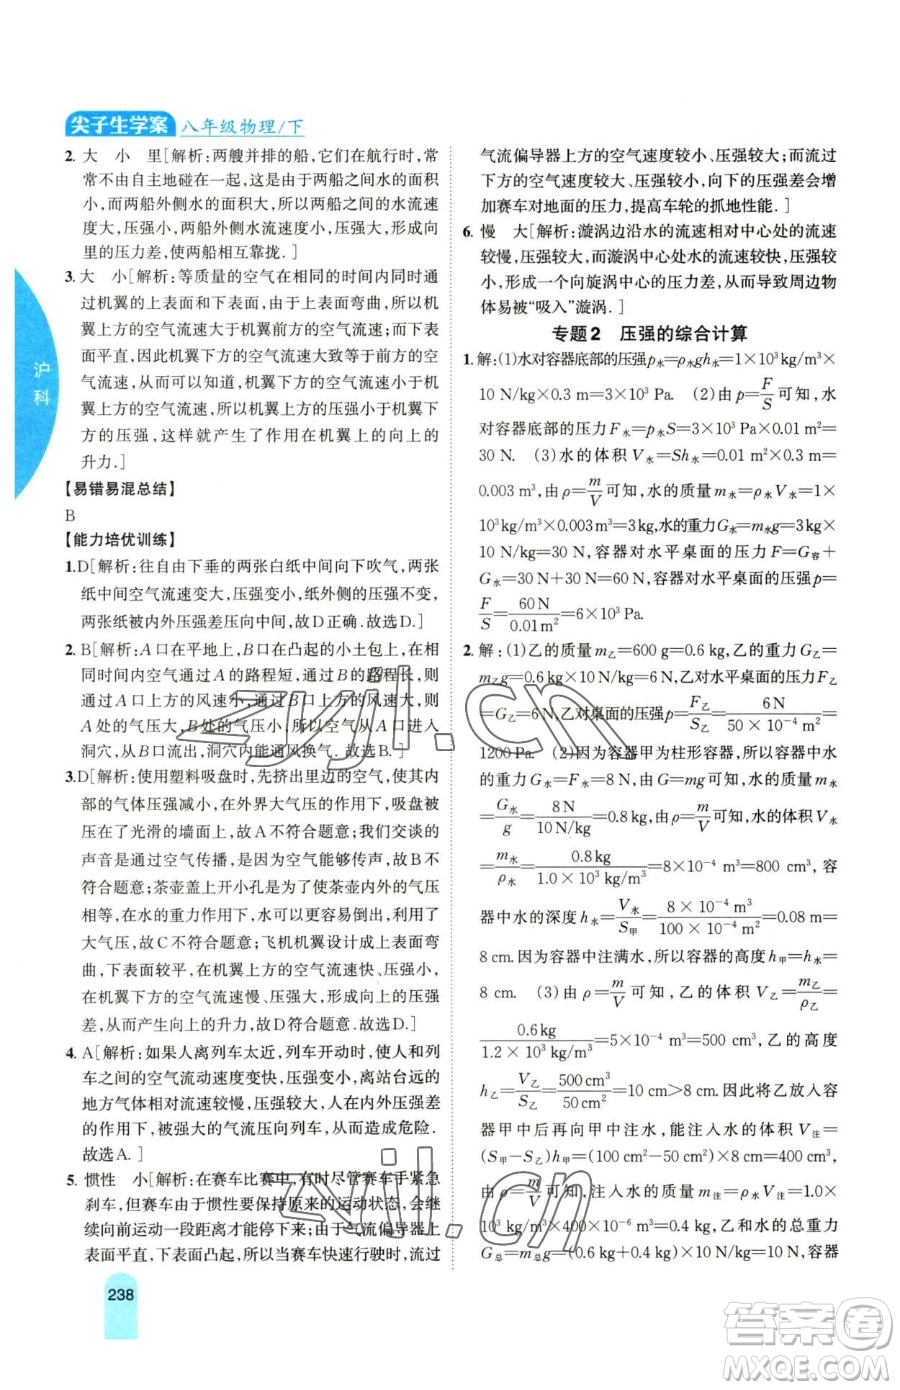 尖子生学案 八年级物理/下
2. 大 小 里[解析:两艘并排的船,它们在航行时,常
常不由自主地碰在一起,这是由于两船之间水的面积
小,而两船外侧水的面积大,所以两船之间的水流速
度大,压强小,两船外侧水的流速小,压强大,在内外两
侧的压力差下,使两船相互靠拢. ]
3. 大 小[解析:等质量的空气在相同的时间内同时通
过机翼的上表面和下表面,由于上表面弯曲,所以机
翼上方的空气流速大于机翼下方的空气流速;机翼
上方的空气流速大导致机翼上方的压强小于机翼下
方的压强,这样就产生了作用在机翼上的向上的
升力. ]
【易错易混总结】
B
【能力培优训练】
1. D[解析:往自由下垂的两张白纸中间向下吹气,两张
纸中间的空气流速变大,压强变小,纸外侧的压强不变,
两张纸被内外压强差压向中间,故D正确.故选D. ]
2. B[解析:A口在平地上,B口在凸起的小土包上,在相
同时间内空气通过A的路程短,通过B的路程长,则
通过A口上方的风速小,通过B口上方的风速大,则
A处的气压大,B处的气压小,所以空气从A口进入
洞穴,从B口流出,洞穴内能通风换气.故选B. ]
3. D[解析:使用塑料吸盘时,先挤出里边的空气,使其内
部的气体压强减小,在外界大气压的作用下,吸盘就
压在了光滑的墙面上,故A不符合题意;我们交谈的
声音是通过空气传播,是声现象,与压强无关,故B不
符合题意;茶壶盖上开小孔是为了使茶壶内外的气压
相等,在水的重力作用下,水能够顺利流出,利用了
大气压,故C不符合题意;飞机机翼设计成上表面弯
曲,下表面较平,在机翼上方的空气流速快、压强小,
在机翼下方的空气流速慢、压强大,因此形成了压强
差,从而产生向上的升力,故D符合题意.故选D. ]
4. A[解析:如果人离列车太近,列车开动时,使人和列
车之间的空气流动速度变快,压强变小,离站台远的
地方气体流速较慢,压强较大,人在内外压强差的
作用下,被强大的气流压向列车,从而造成危险.
故选A. ]
5. 惯性 小[解析:在赛车比赛中,有时尽管赛车手紧急
刹车,但赛车由于惯性要保持原来的运动状态,会继
续向前运动一段距离才能停下来;由于气流偏导器上
表面平直,下表面凸起,所以当赛车快速行驶时,流过
238
沪科
气流偏导器上方的空气速度较小、压强较大;而流过
下方的空气速度较大、压强较小,向下的压强差会增
加赛车对地面的压力,提高车轮的抓地性能. ]
6. 慢 大[解析:漩涡边沿水的流速相对中心处的流速
较慢,压强较大,而漩涡中心处水的流速较快,压强较
小,形成一个向漩涡中心的压力差,导致周边物
体易被“吸入”漩涡. ]
专题2 压强的综合计算
1. 解:(1)水对容器底部的压强p水=ρ水gh水=1×10³ kg/m³×
10 N/kg×0.3 m=3×10³ Pa. (2)由p=F/S可知,水
对容器底部的压力F水=p水S=3×10³ Pa×0.01 m²=
30 N. (3)水的体积V水=Sh水=0.01 m²×0.3 m=
0.003 m³,由ρ=m/V可知,水的质量m水=ρ水V水=1×
10³ kg/m³×0.003 m³=3 kg,水的重力G水=m水g=3 kg×
10 N/kg=30 N,容器对水平桌面的压力F=G容+
G水=30 N+30 N=60 N,容器对水平桌面的压强p=
F/S=60 N/0.01 m²=6×10³ Pa.
2. 解:(1)乙的质量m乙=600 g=0.6 kg,乙的重力G乙=
m乙g=0.6 kg×10 N/kg=6 N,乙对水平桌面的压力F乙
=G乙=6 N,乙对桌面的压强p=F乙/S乙=6 N/(50×10⁻⁴ m²)=
1200 Pa. (2)因为容器甲为柱形容器,所以容器中水
的重力G水=F水=8 N,由G=mg可知,水的质量m水
=G水/g=8 N/(10 N/kg)=0.8 kg,由ρ=m/V可知,水的体积V水=
m水/ρ水=0.8 kg/(1.0×10³ kg/m³)=8×10⁻⁴ m³=800 cm³,容
器中水的深度h水=V水/S甲=8×10⁻⁴ m³/(100×10⁻⁴ m²)=0.08 m=
8 cm.因为容器中注满水,所以容器的高度h甲=h水=
8 cm. (3)由ρ=m/V可知,乙的体积V乙=m乙/ρ乙=
0.6 kg/(1.2×10³ kg/m³)=5×10⁻⁴ m³=500 cm³,乙的高度
h乙=V乙/S乙=500 cm³/50 cm²=10 cm>8 cm.因此将乙放入容
器甲中后再向甲中注水,能注入水的体积V注=
(S甲-S乙)h甲=(100 cm²-50 cm²)×8 cm=400 cm³,
由ρ=m/V可知,注入水的质量m注=ρ水V注=1.0×
10³ kg/m³×400×10⁻⁶ m³=0.4 kg,乙和水的总重力
G总=m总g=(0.6 kg+0.4 kg)×10 N/kg=10 N,容器
zyjl.cn
zyjl.cn
答案圈
MXQE.COM